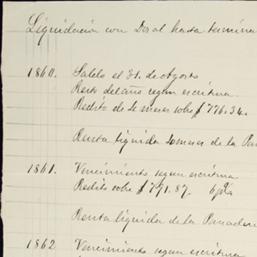 Liquidación con Doral hasta termina
1860. Saldo el 31. de Agosto
Resto del año segun escritura
Redito de 4 meses sobe $ 776.34.
Renta liquida 4 meses de la Pa
1861. Vencimiento segun escritura
Redito sobe $ 791.87. 6 p%
Renta liquida de la Panader
1862 Vencimiento segun escritura